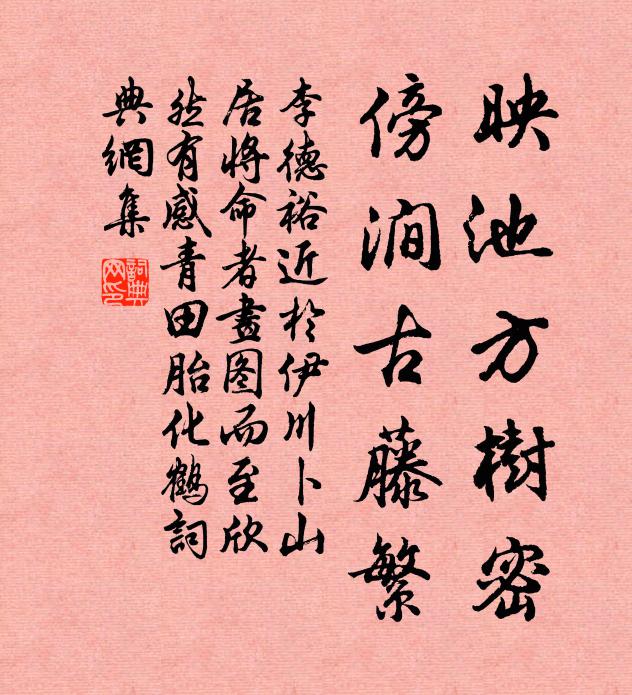 映池方樹密
傍澗古藤繁
李德裕近於伊川卜山
居將命者畫图而至欣
然有感青田胎化鶴詞
典網集
詞典
网印